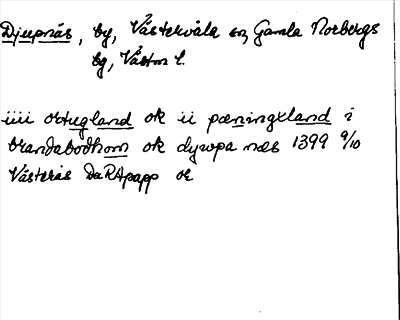 Djupnäs, by, Västervåla sn, Gamla Norbergs
bg, Västm l.
iiii ortugland ok ii pæningxland i
brandabodhom ok dywpa næs 1399 9/10
Västerås DaRApapp or